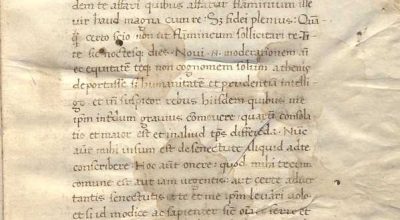 dem te affari quibus affatur Flamininum ille
vir haud magna cum re · Sʒ fidei plenus · Quāꝗ̄
certo scio non ut Flamineum sollicitari te · Ti
te sic noctesqʒ dies · Novi · n̄ · moderationem · animi
et equitatem teqʒ non cognomem solum athenis
deportasse sʒ humanitatem et prudentiā intelli
go et tn̄ suspicor rebus hisdem quibus me
ipm̄ interdum gravius commovere quarū consola
tio et maior est et in aliud tp̄s differēda · Nūc
aut mihi visum est de senectute aliquid ad te
conscribere · Hoc aut onere quod mihi tecum
comune est aut iam urgentis aut certe adven
tantis senectutis a te et me ipm̄ levari volo
et si id modice ac sapienter sic oīa et ferre et